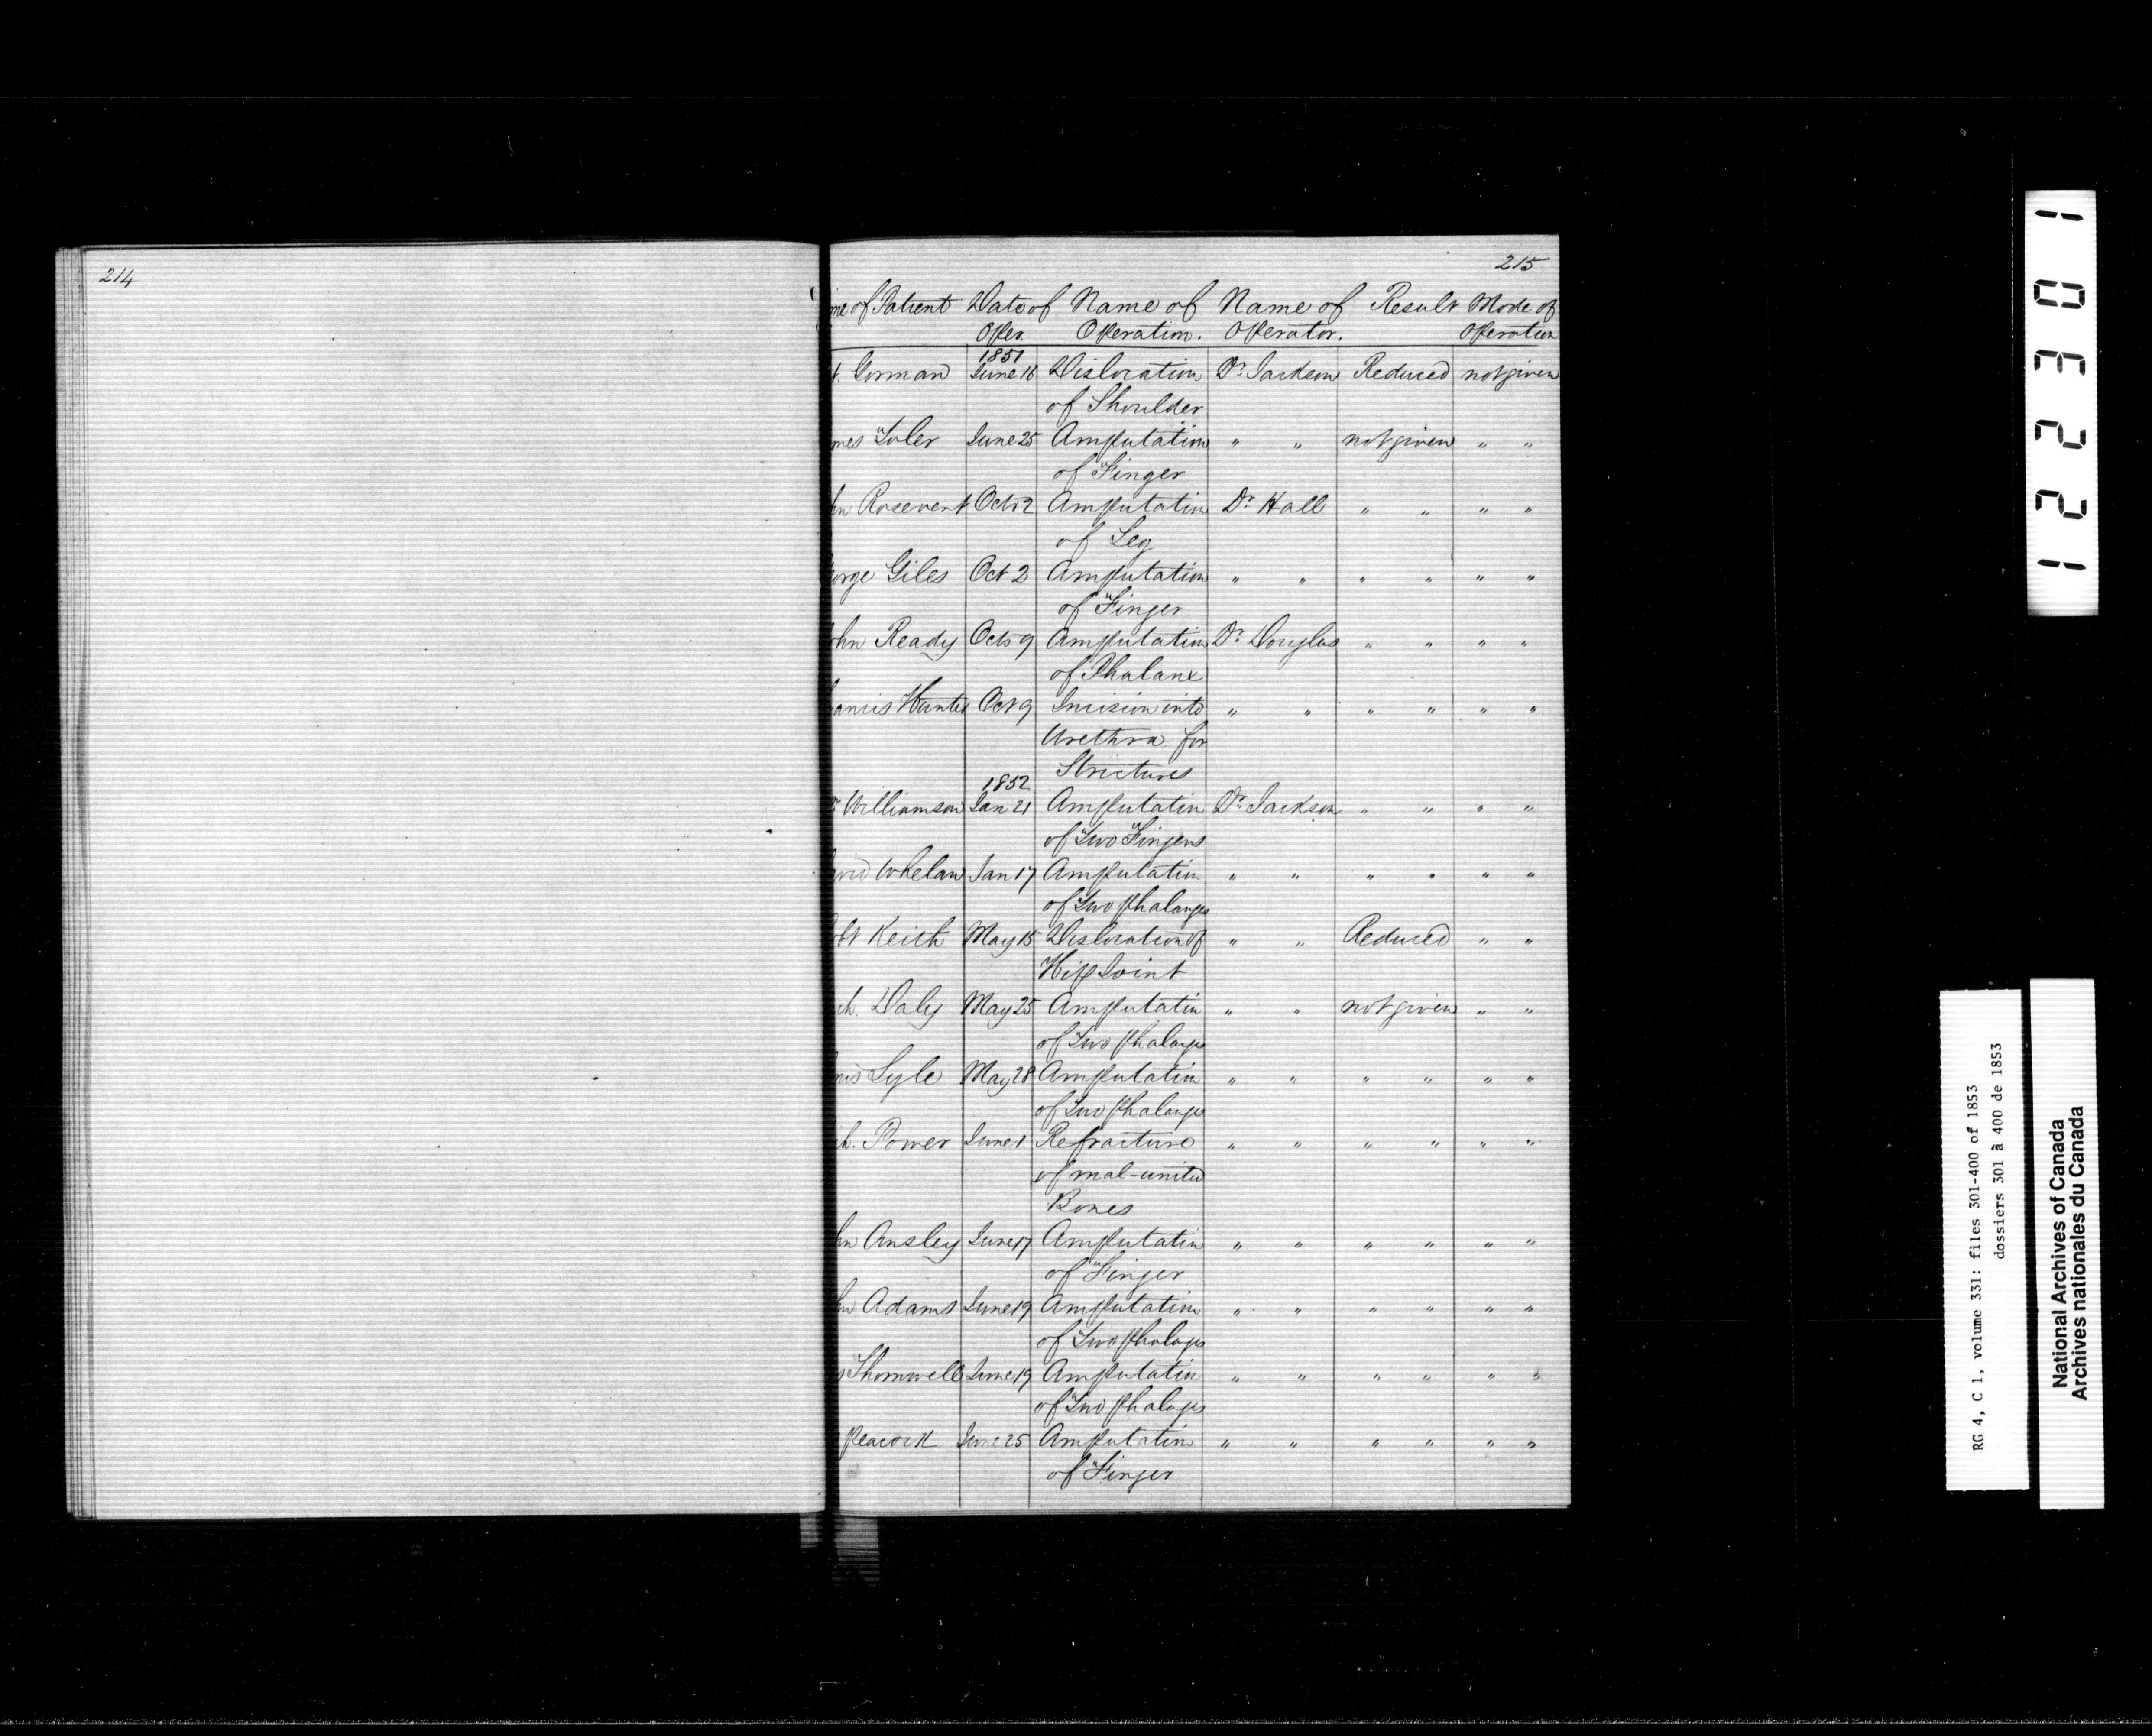 214
215
me of Patient Date of Name of Name of Result Mode of
Oper. Operation. Operator. Operation
1851
t. Gorman June 16 Dislocation Dr. Jackson Reduced not given
of Shoulder
mes Toler June 25 Amputation " " not given " "
of Finger
hn Rosevent Oct 2 Amputation Dr. Hall " " " "
of Leg
orge Giles Oct 2 Amputation " " " " " "
of Finger
ohn Ready Oct 9 Amputation Dr. Douglas " " " "
of Phalanx
ancis Hunter Oct 9 Incision into " " " " " "
Urethra for
Strictures
1852
m Williamson Jan 21 Amputation Dr. Jackson " " " "
of Two Fingers
avid Whelan Jan 17 Amputation " " " " " "
of Two phalanges
obt Keith May 15 Dislocation of " " Reduced " "
Hip Joint
ch. Daly May 25 Amputation " " not given " "
of Two phalanges
Lyle May 28 Amputation " " " " " "
of Two phalanges
ch. Power June 1 Refracture " " " " " "
of mal-united
Bones
hn Ansley June 17 Amputation " " " " " "
of Finger
hn Adams June 19 Amputation " " " " " "
of Two phalanges
s Thornwell June 19 Amputation " " " " " "
of Two phalanges
Peacock June 25 Amputation " " " " " "
of Finger
12230 1
RG 4, C 1, volume 331: files 301-400 of 1853
dossiers 301 à 400 de 1853
National Archives of Canada
Archives nationales du Canada